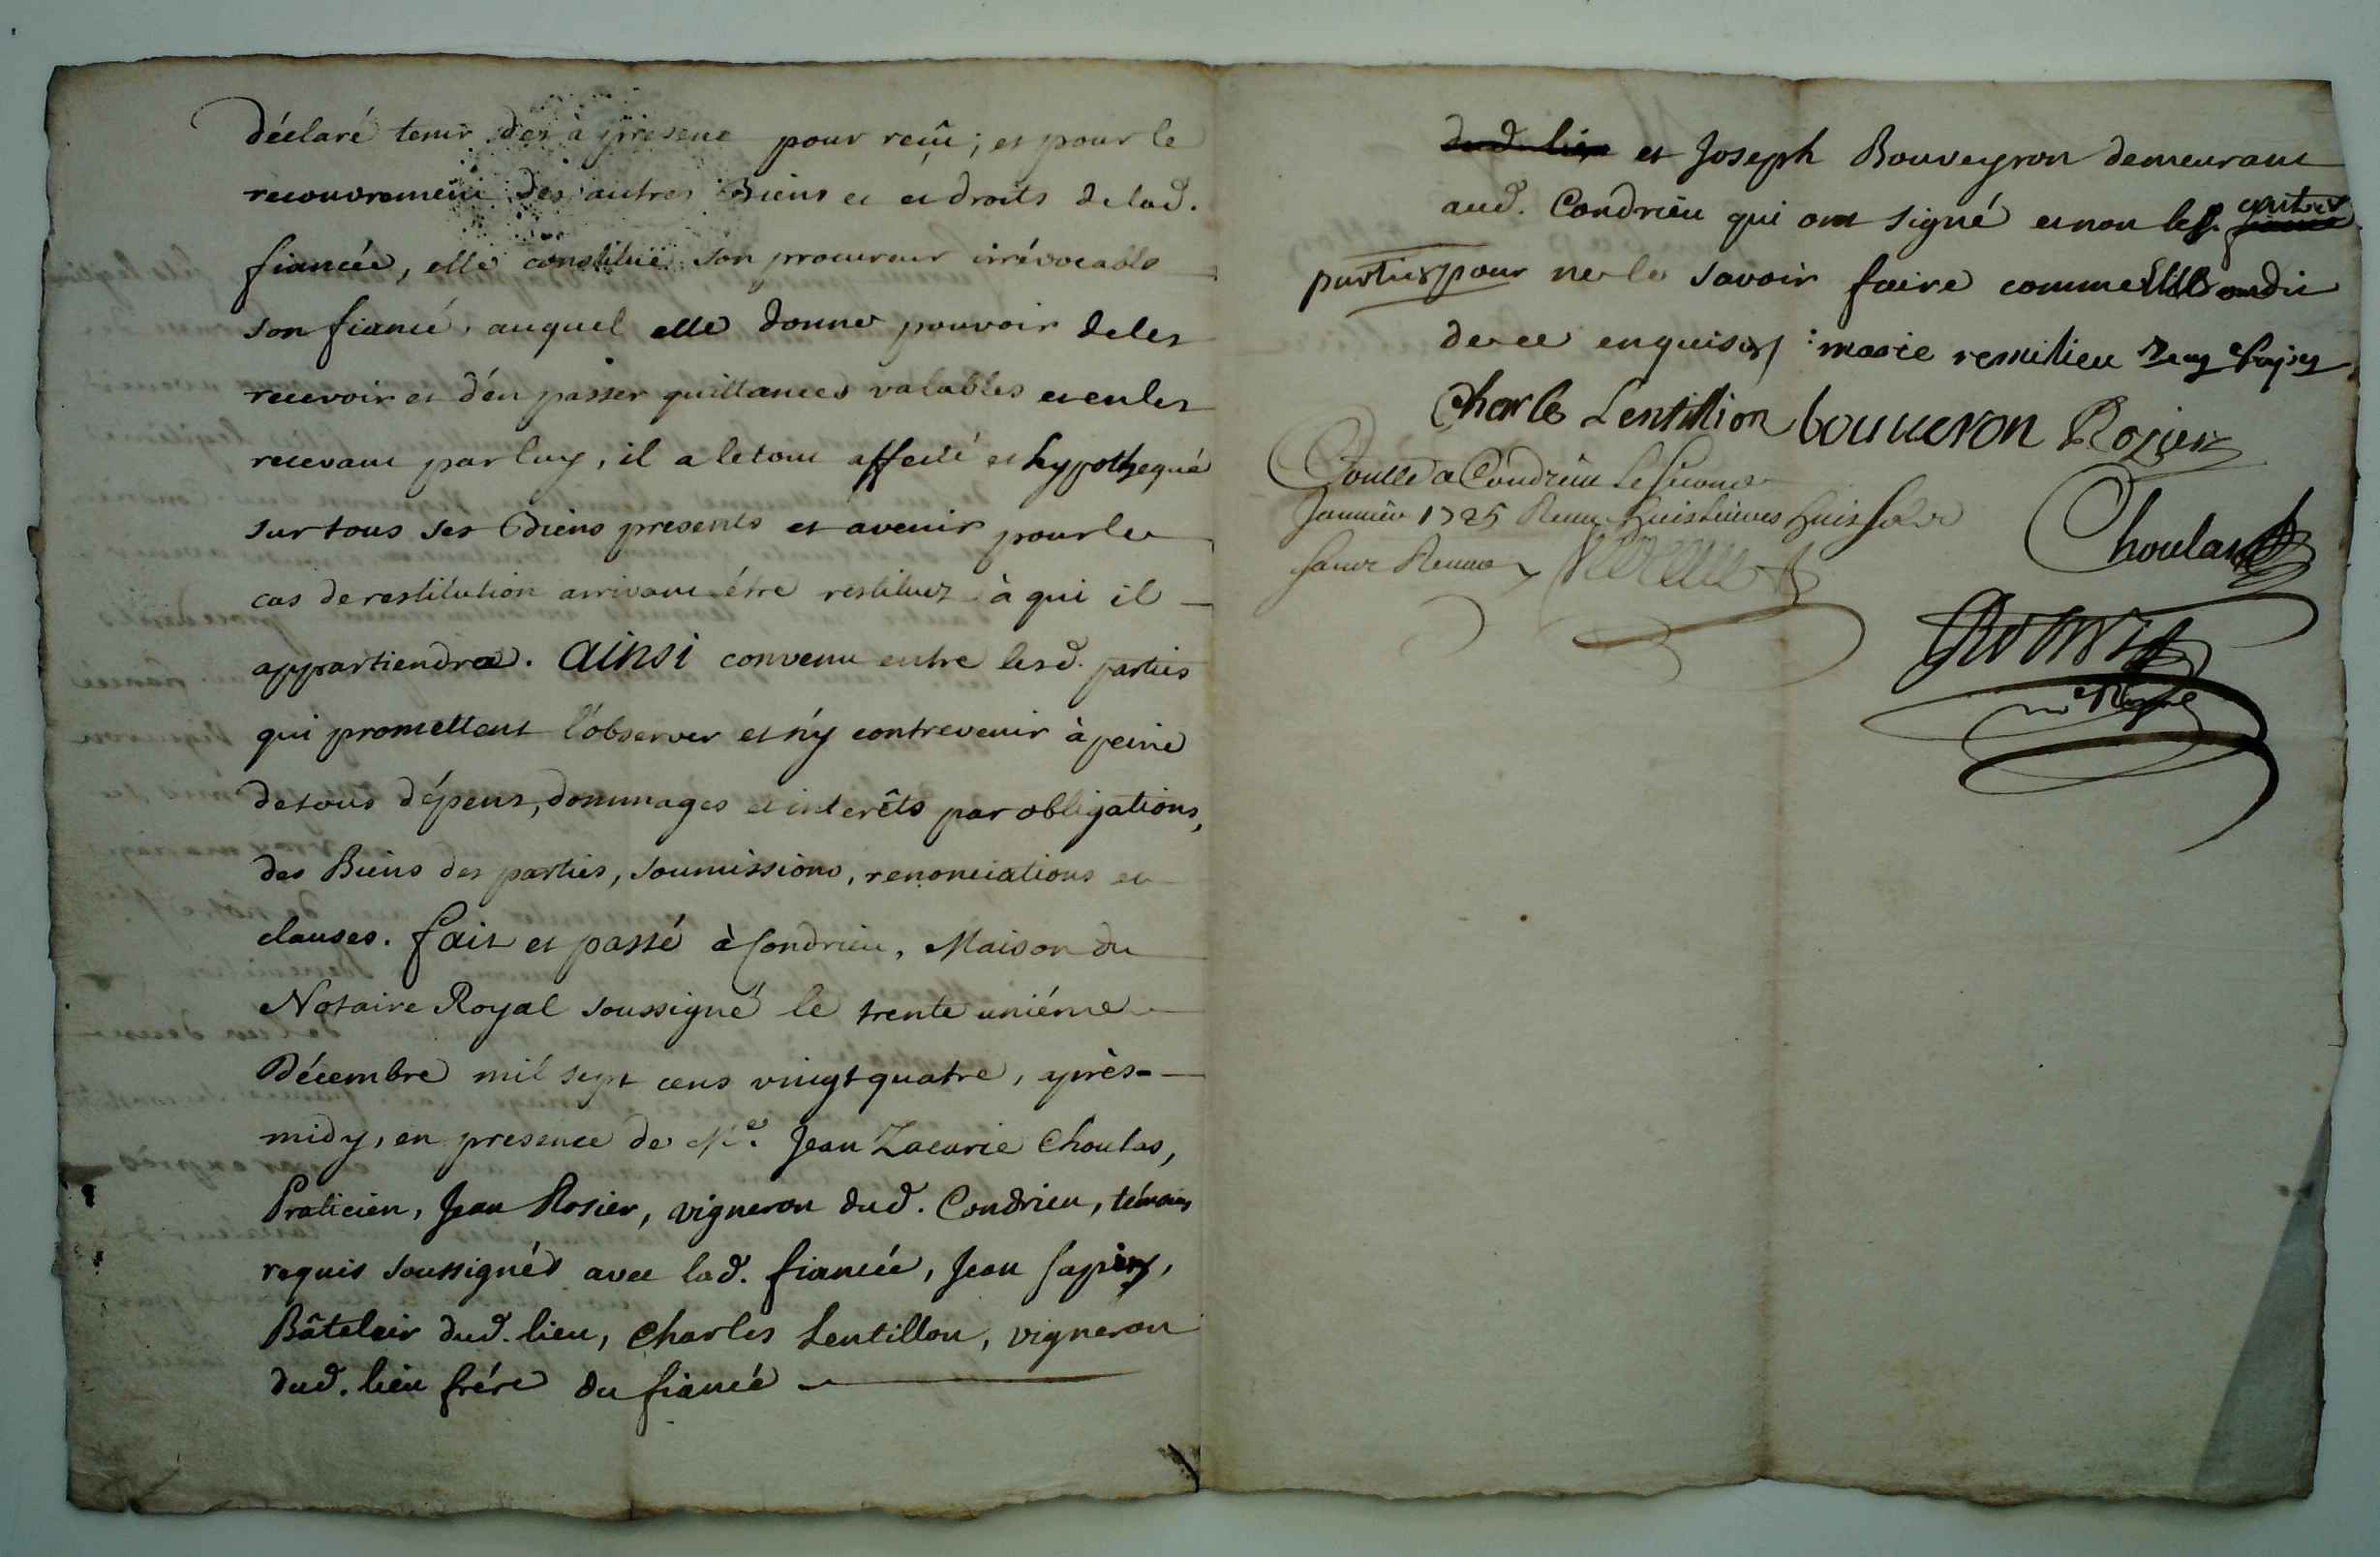 déclaré tenir dès à present pour reçû; et pour le
recouvrement des autres Biens et et droits de lad.
fiancée, elle constitüe son procureur irrévocable
son fiancé, auquel elle donne pouvoir de les
recevoir et d'en passer quittances valables et en les
recevant par luy, il a le tout affecté et hypothequé
sur tous ses Biens presents et avenir pour le
cas de restitution arrivant être restituez à qui il
appartiendra. Ainsi convenu entre lesd. parties
qui promettent l'observer et n'y contrevenir à peine
de tous dépens, dommages et interêts par obligations,
des Biens des parties, soumissions, renonciations et
clauses. fait et passé à Condrieu, Maison du
Notaire Royal soussigné le trente uniéme
Décembre mil sept cens vingt quatre, après-
midy, en presence de Me. Jean Zacarie Choulas,
Praticien, Jean Rosier, vigneron dud. Condrieu, témoins
requis soussignés avec lad. fiancée, Jean Sapiey,
Bâtelier dud. lieu, Charles Lentillon, vigneron
dud. lieu frére du fiancé
dud. lieu et Joseph Bouveyron demeurant
aud. Condrieu qui ont signé et non les autres
parties pour ne le savoir faire comme ont dit
de ce enquis : marie remilieu
Charle Lentillion bouueron Rozier
Condrieu Le second
Janvier 1725 Receu huit livres huit sols
Choulas